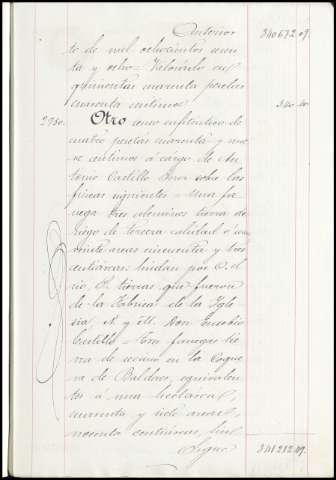 Anterior 340672 09
to de mil ochocientos noven
ta y ocho = Valorado en
quinientas cuarenta pesetas
cuarenta centimos 540 40
2950. Otro censo enfiteutico de
cuatro pesetas cuarenta y nue
ve centimos á cargo de An
tonio Castillo sobre las
fincas siguientes = Una fa
nega tres celemines tierra de
riego de tercera calidad ó
veinte areas cincuenta y tres
centiáreas lindan por O. el
rio, P. tierras que fueron
de la Fábrica de la Igle
sia, N. y M. Don Eusebio
Castillo = Tres fanegas tie
rra de secano en la Cogue
ra de Balders, equivalen
tes á una hectárea,
cuarenta y siete areas,
noventa centiáreas, lin
Sigue 341212 49.